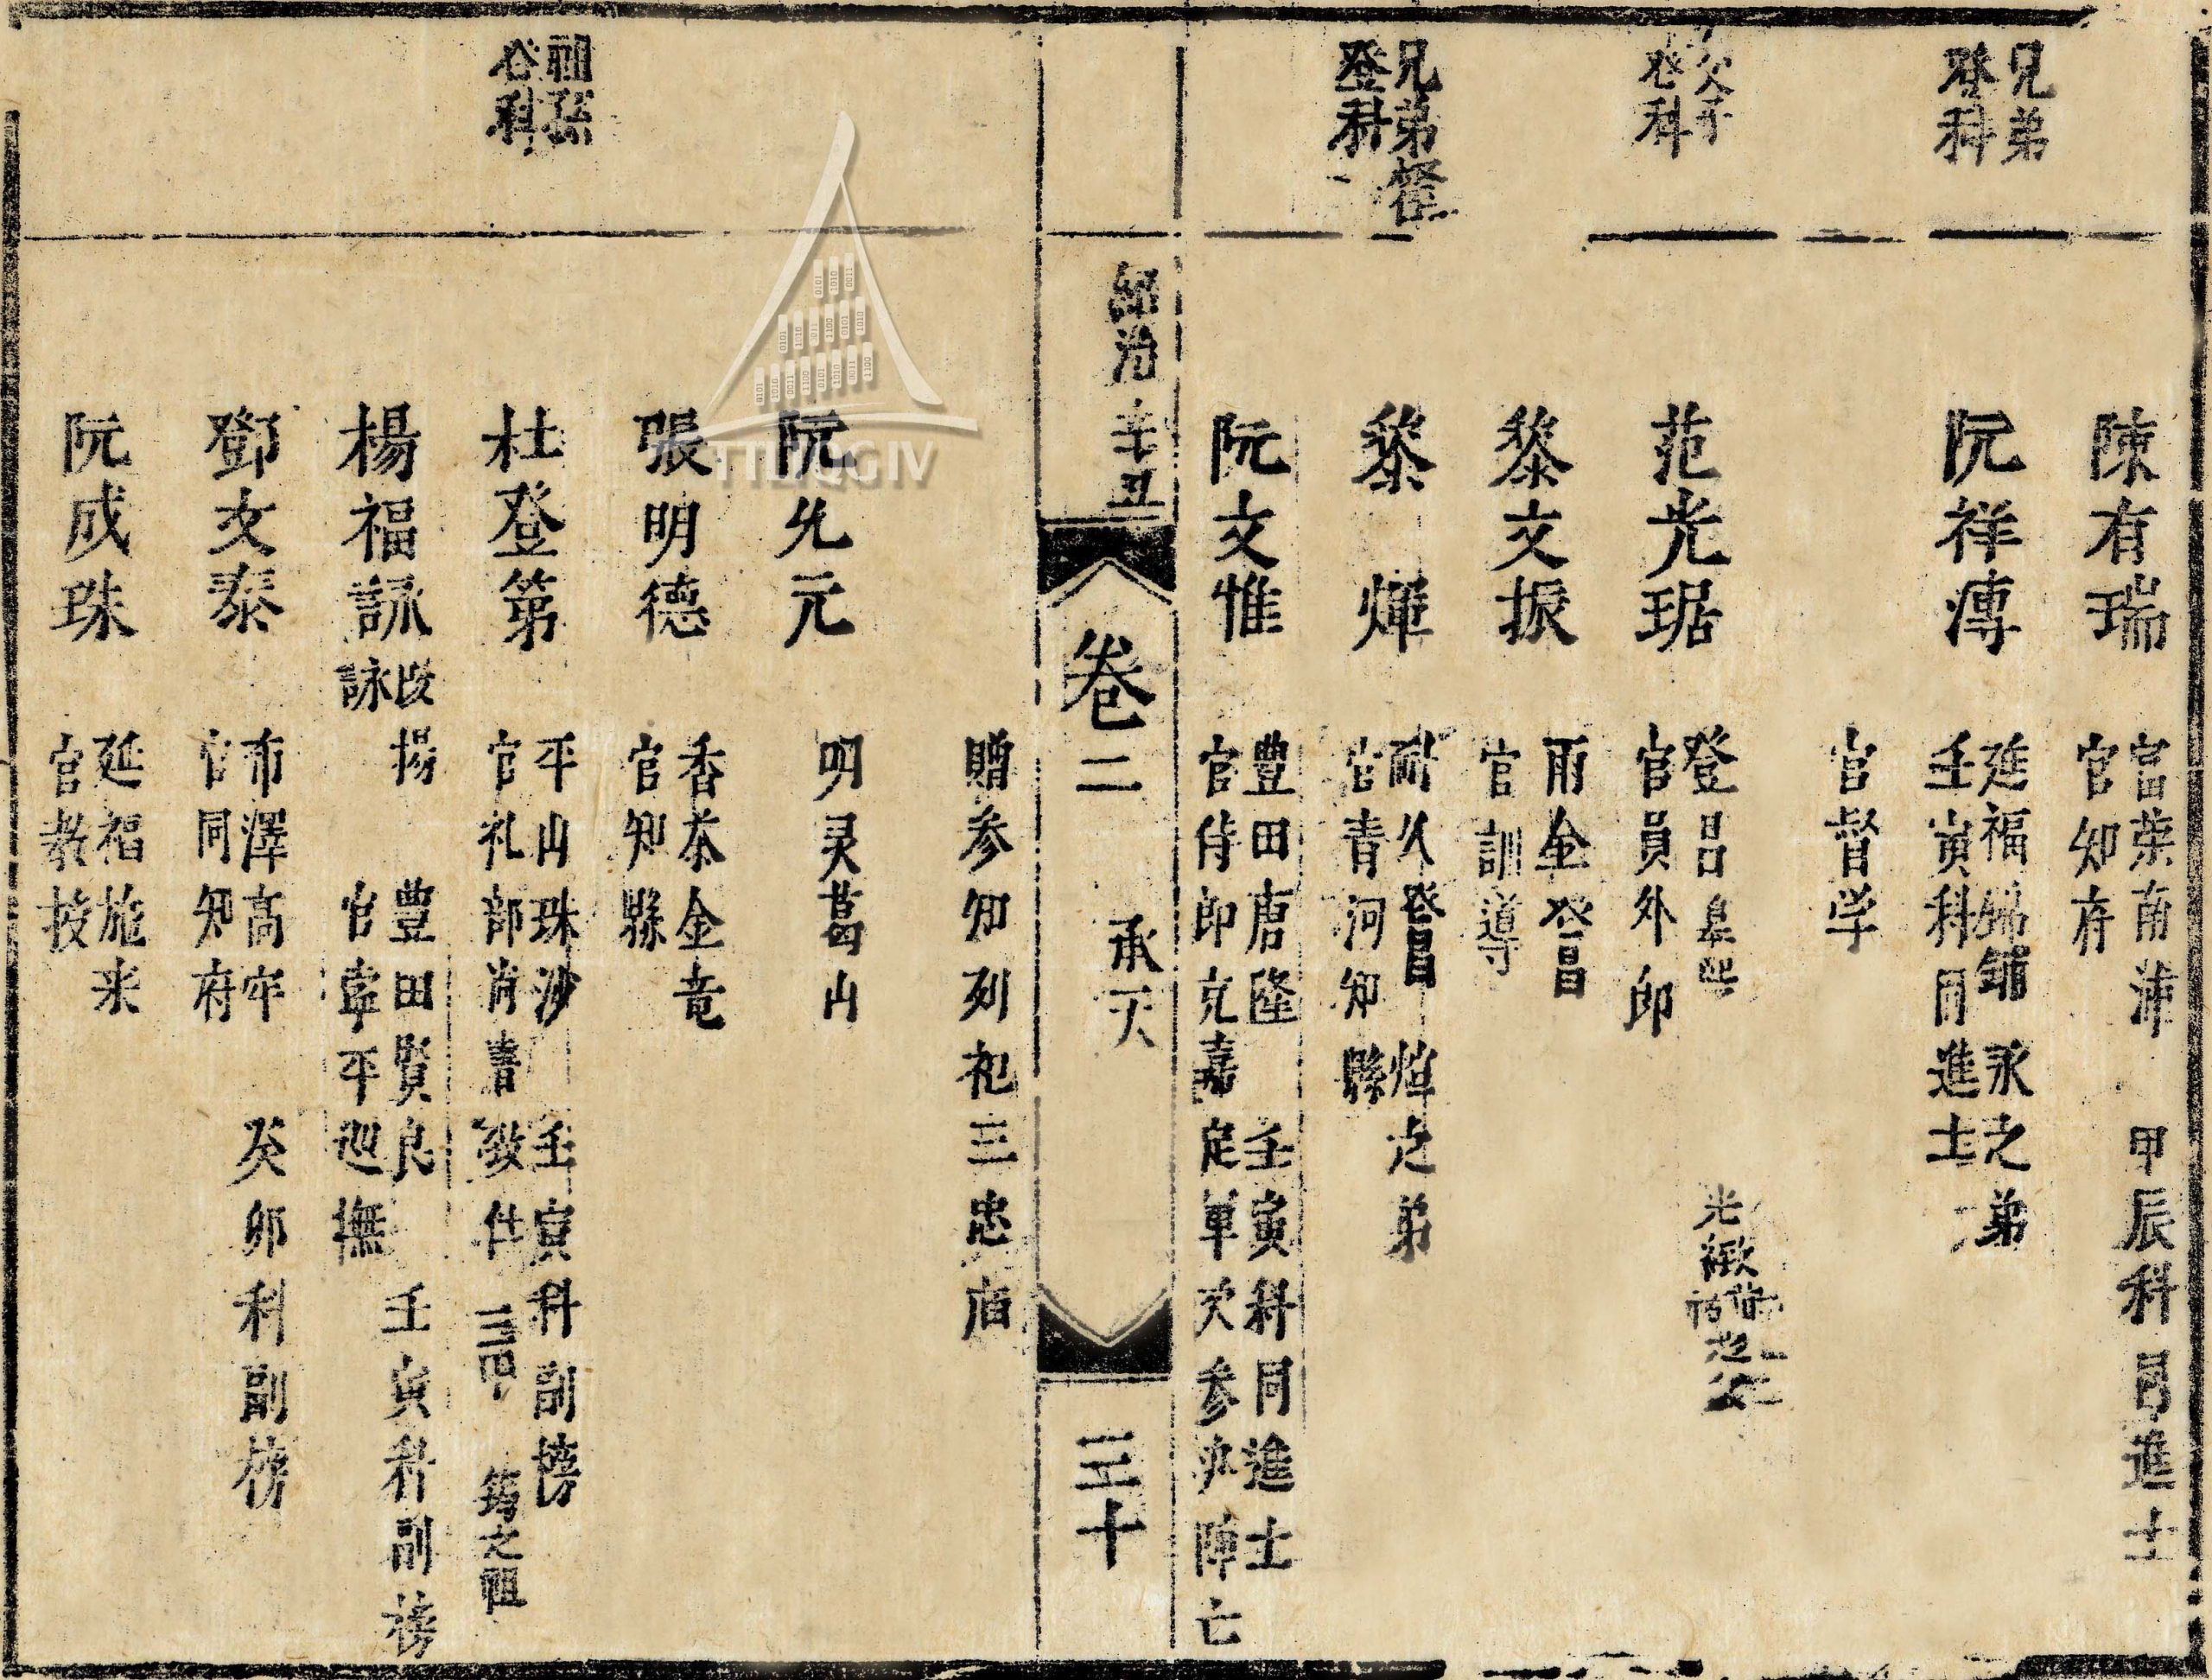 陳有瑞
富荣南浦 甲辰科同進士
官知府
兄弟
登科
阮祥傳
延福 永之弟
壬寅科同進士
官督学
父子
登科
范光琚
登昌
官員外郎
光
黎文振
雨金登昌
官訓導
兄弟督
登科
黎煇
耐久登昌 焯之弟
官青河知縣
阮文惟
豊田唐隆 壬寅科同進士
官侍郎充嘉定軍次参办陣亡
紹治辛丑 卷二 承天 三十
贈参知列祀三忠庙
阮允元
明灵葛山
張明德
香茶金竜
官知縣
祖孫
登科
杜登第
平山珠沙 壬寅科副榜
官礼部尚書致仕 筠之祖
楊福詠
改揚
詠
豊田賢良 壬寅科副榜
官寧平巡撫
鄧文泰
布澤高牢 癸卯科副榜
官同知府
阮成珠
延福旅来
官教授
TTLTQGIV